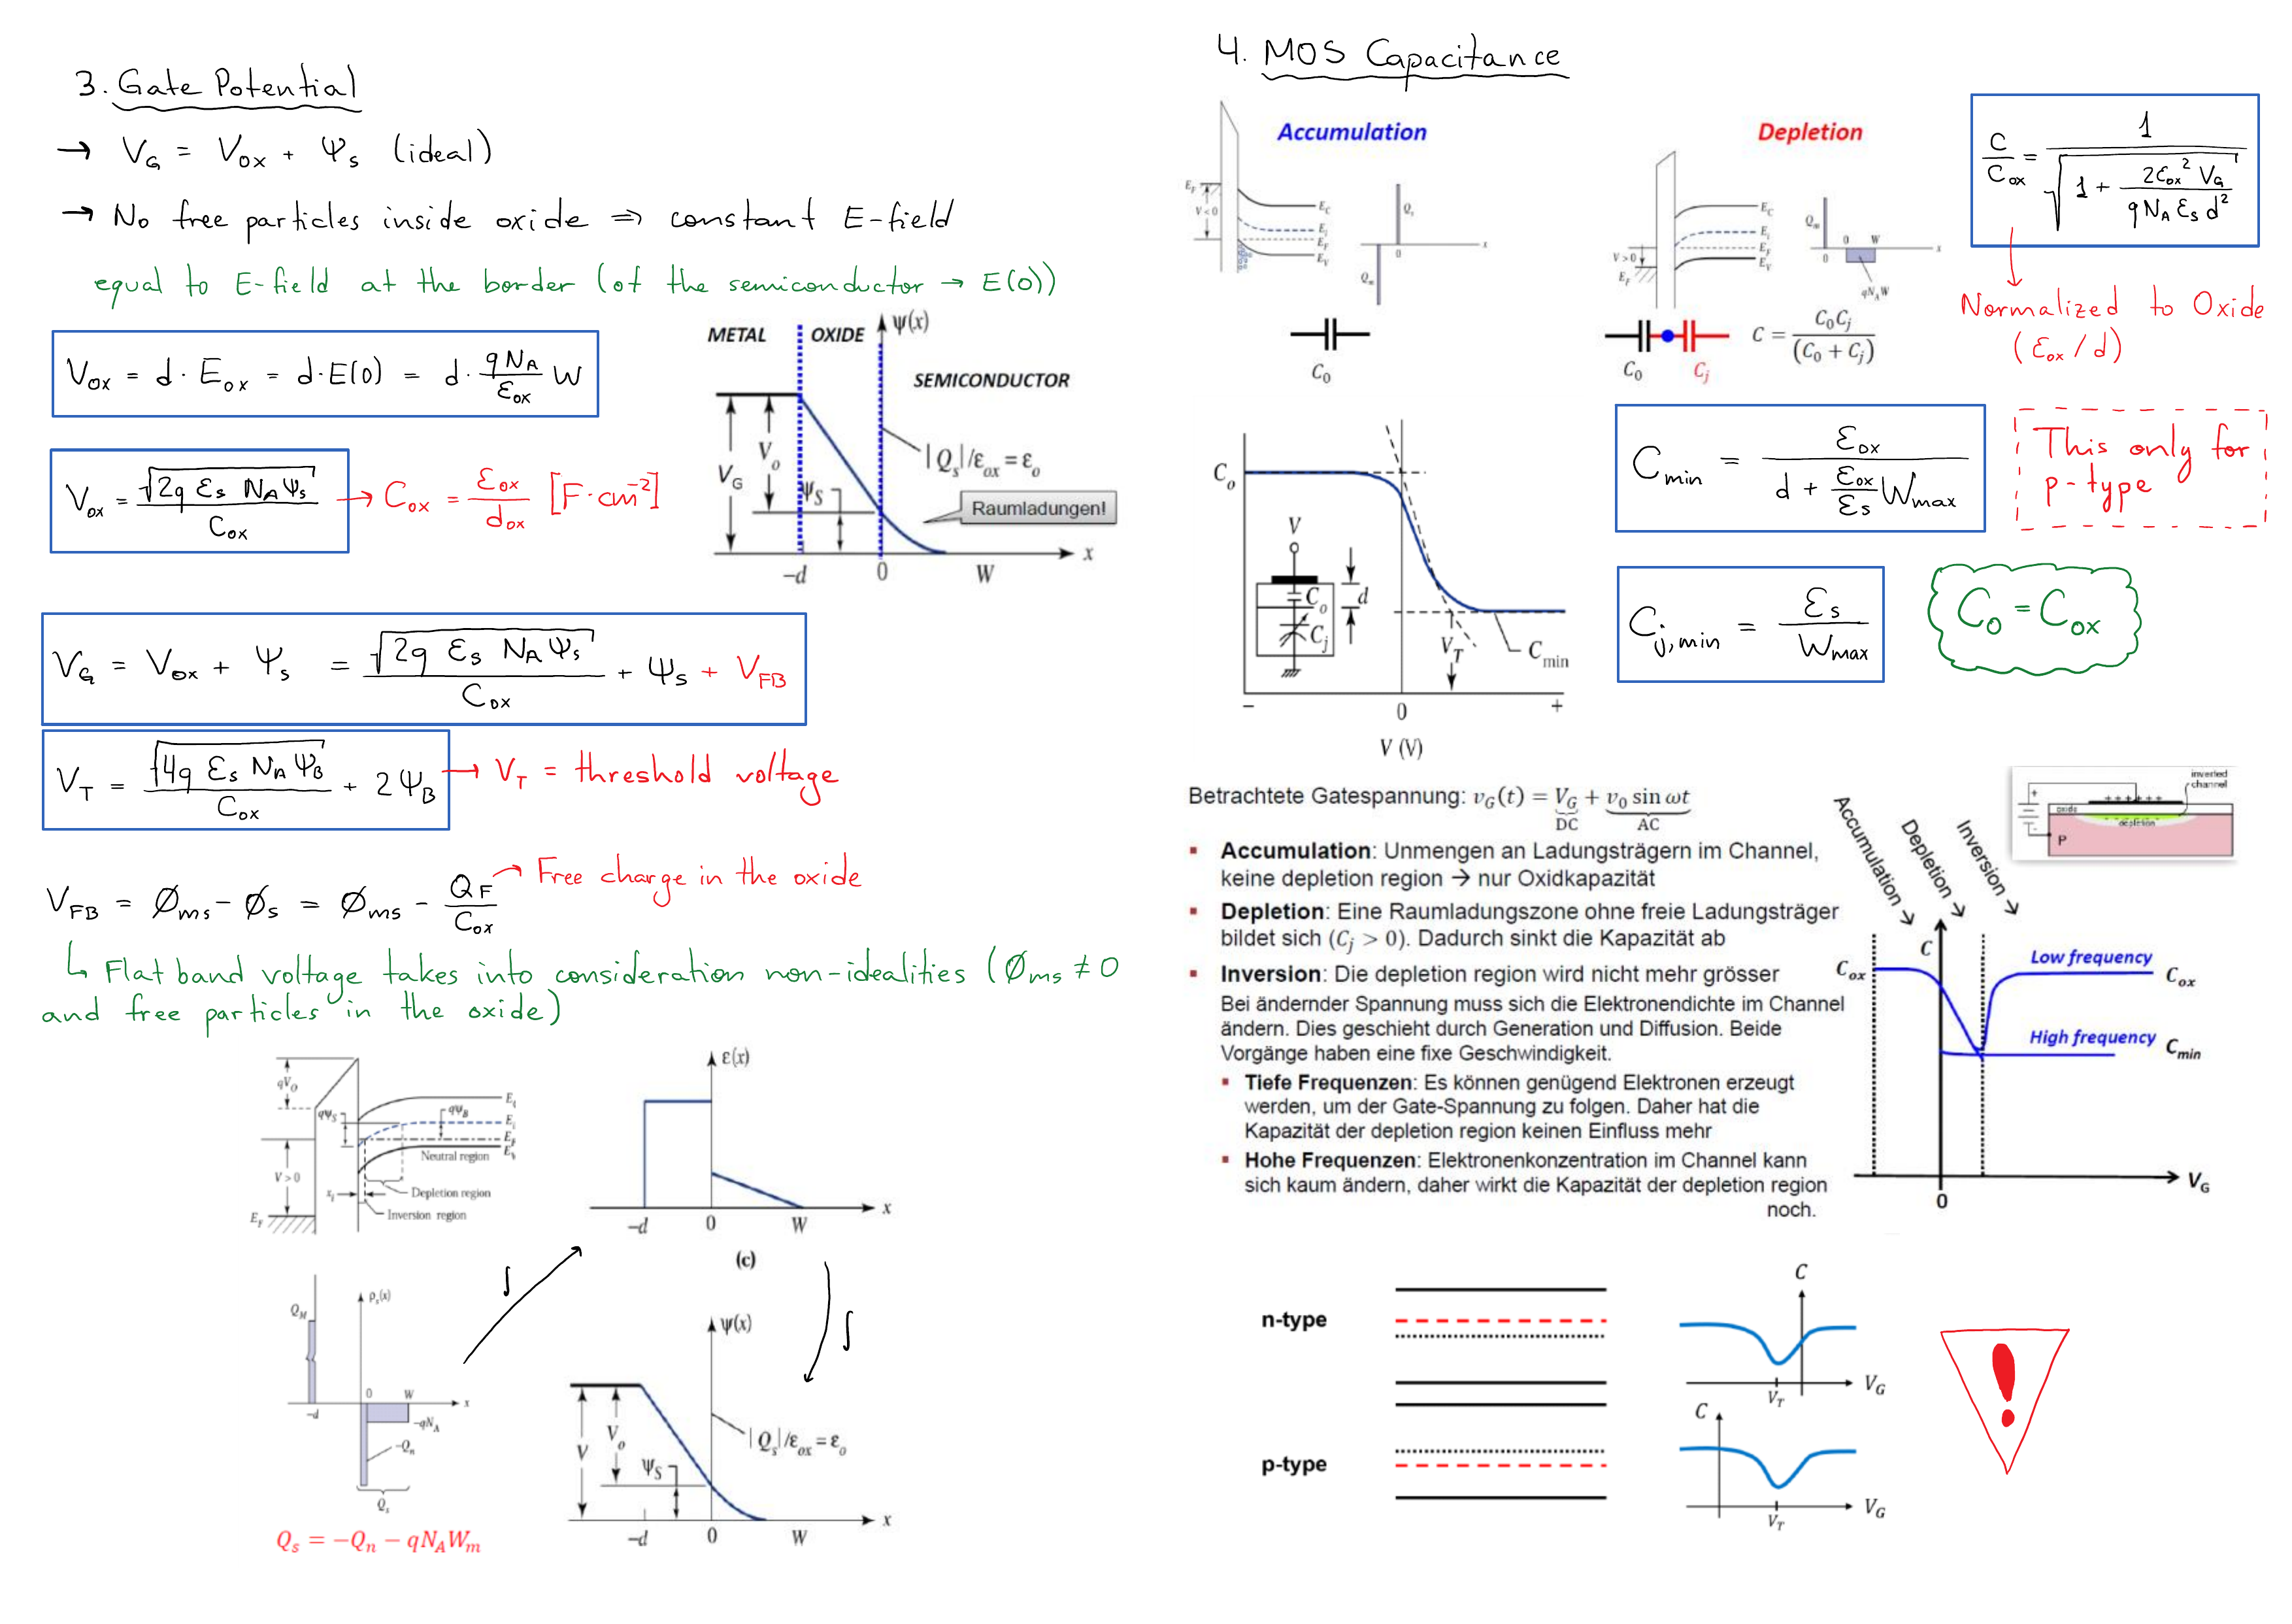 3. Gate Potential
→ V_G = V_ox + Ψ_s (ideal)
→ No free particles inside oxide ⇒ constant E-field
equal to E-field at the border (of the semiconductor → E(0))
V_ox = d · E_ox = d·E(0) = d · qN_A/ε_ox W
METAL OXIDE ψ(x)
SEMICONDUCTOR
V_G V_o ψ_S
|Q_s|/ε_ox = ε_o
Raumladungen!
−d 0 W x
V_ox = √(2q ε_s N_A Ψ_s)/C_ox → C_ox = ε_ox/d_ox [F·cm⁻²]
V_G = V_ox + Ψ_s = √(2q ε_s N_A Ψ_s)/C_ox + Ψ_s + V_FB
V_T = √(4q ε_s N_A Ψ_B)/C_ox + 2Ψ_B → V_T = threshold voltage
V_FB = Ø_ms - Ø_s = Ø_ms - Q_F/C_ox → Free charge in the oxide
↳ Flat band voltage takes into consideration non-idealities (Ø_ms ≠ 0
and free particles in the oxide)
qV_o
qψ_S qψ_B
E_i
E_F
Neutral region
V > 0
x_i
Depletion region
Inversion region
E_F
ε(x)
−d 0 W x
(c)
∫
∫
Q_M ρ_s(x)
0 W x
−d
−qN_A
−Q_n
Q_s
Q_s = −Q_n − qN_A W_m
ψ(x)
V V_o ψ_S
|Q_s|/ε_ox = ε_o
−d 0 W x
4. MOS Capacitance
Accumulation
E_F
V < 0
E_C
E_i
E_F
E_V
Q_s
0 x
Q_m
C_0
Depletion
E_C
E_i
E_F
E_V
V > 0
E_F
Q_m
0 W x
qN_A W
C_0 C_j
C = C_0 C_j/(C_0 + C_j)
C/C_ox = 1/√(1 + 2ε_ox² V_G/(qN_A ε_s d²))
Normalized to Oxide
(ε_ox/d)
C_o
V
C_o d
C_j
V_T C_min
− 0 +
V (V)
C_min = ε_ox/(d + ε_ox/ε_s W_max)
This only for
p-type
C_j,min = ε_s/W_max
C_0 = C_ox
Betrachtete Gatespannung: v_G(t) = V_G + v_0 sin ωt
DC AC
▪ Accumulation: Unmengen an Ladungsträgern im Channel,
keine depletion region → nur Oxidkapazität
▪ Depletion: Eine Raumladungszone ohne freie Ladungsträger
bildet sich (C_j > 0). Dadurch sinkt die Kapazität ab
▪ Inversion: Die depletion region wird nicht mehr grösser
Bei ändernder Spannung muss sich die Elektronendichte im Channel
ändern. Dies geschieht durch Generation und Diffusion. Beide
Vorgänge haben eine fixe Geschwindigkeit.
▪ Tiefe Frequenzen: Es können genügend Elektronen erzeugt
werden, um der Gate-Spannung zu folgen. Daher hat die
Kapazität der depletion region keinen Einfluss mehr
▪ Hohe Frequenzen: Elektronenkonzentration im Channel kann
sich kaum ändern, daher wirkt die Kapazität der depletion region
noch.
inverted
channel
+ + + + + +
oxide
depletion
P
Accumulation →
Depletion →
Inversion →
C
C_ox
Low frequency C_ox
High frequency C_min
0 V_G
n-type
C
V_T V_G
p-type
C
V_T V_G
!